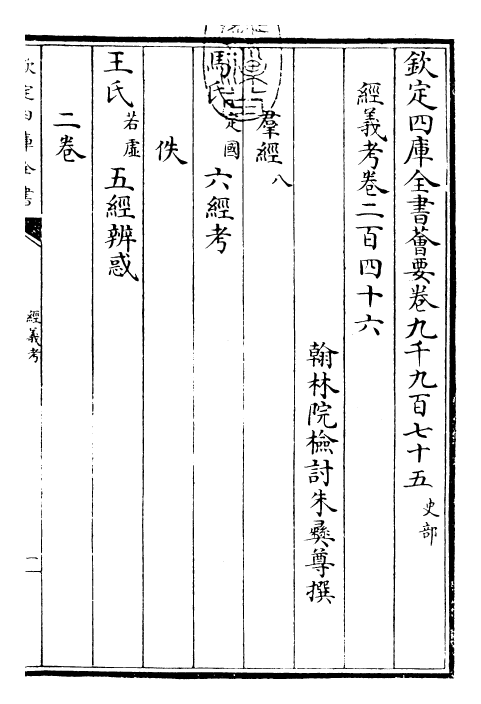 欽定四庫全書薈要卷九千九百七十五 史部
經義考卷二百四十六
翰林院檢討朱彝尊撰
羣經八
馬氏定國六經考
佚
王氏若虛五經辨惑
二卷
欽定四庫全書
經義考
一